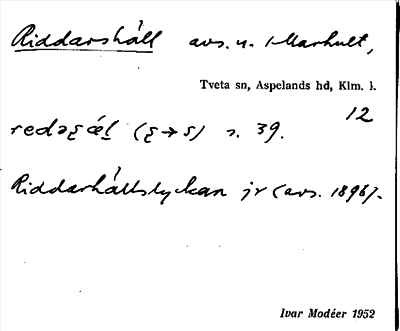 Riddarshåll avs. u. Marhult,
Tveta sn, Aspelands hd, Klm. l.
12
s. 39.
Riddarhållslyckan jr (avs. 1896).
Ivar Modéer 1952